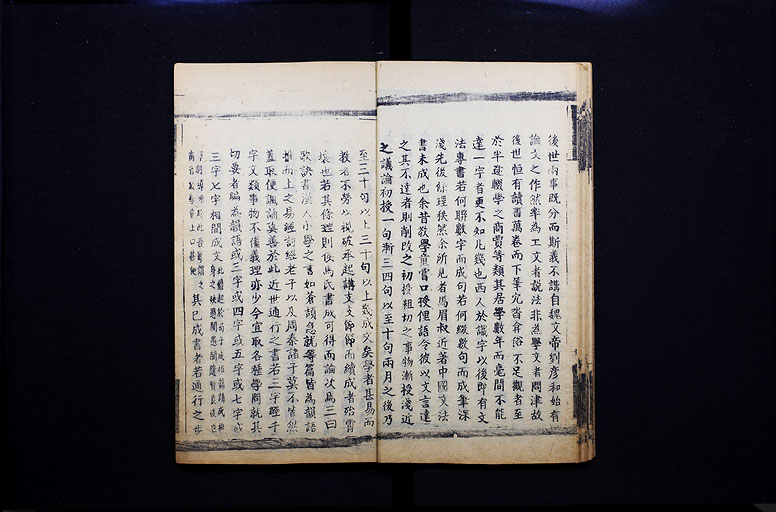 後世兩事既分而斯義不講自魏文帝劉彥和始有
論文之作然率為工文者說法非為學文者問津故
後世恒有讀書萬卷而下筆冗沓弇俗不足觀者至
於半途輟學之商賈等類其居學數年而毫間不能
達一字者更不知凡幾也西人於識字以後即有文
法專書若何聯數字而成句若何綴數句而成筆深
淺先後條理秩然余所見者馬眉叔近著中國文法
書未成也余昔教學童嘗口授俚語令彼以文言達
之其不達者則削改之初授粗切之事物漸授淺近
之議論初授一句漸三四句以至十句兩月之後乃
至三十句以上三十句以上幾成文矣學者甚易而
教者不勞以視破承起講支支節節而續成者殆霄
壤也若其條理則俟馬氏書成可得而論次焉三曰
歌訣書漢人小學之書如蒼頡急就等篇皆為韻語
推而上之易經詩經老子以及周秦諸子莫不皆然
蓋取便諷誦莫善於此近世通行之書若三字經千
字文類事物不備義理亦少今宜取各種學問就其
切要者編為韻語或三字或四字或五字或七字或
三字七字相間成文
其已成書者若通行之步